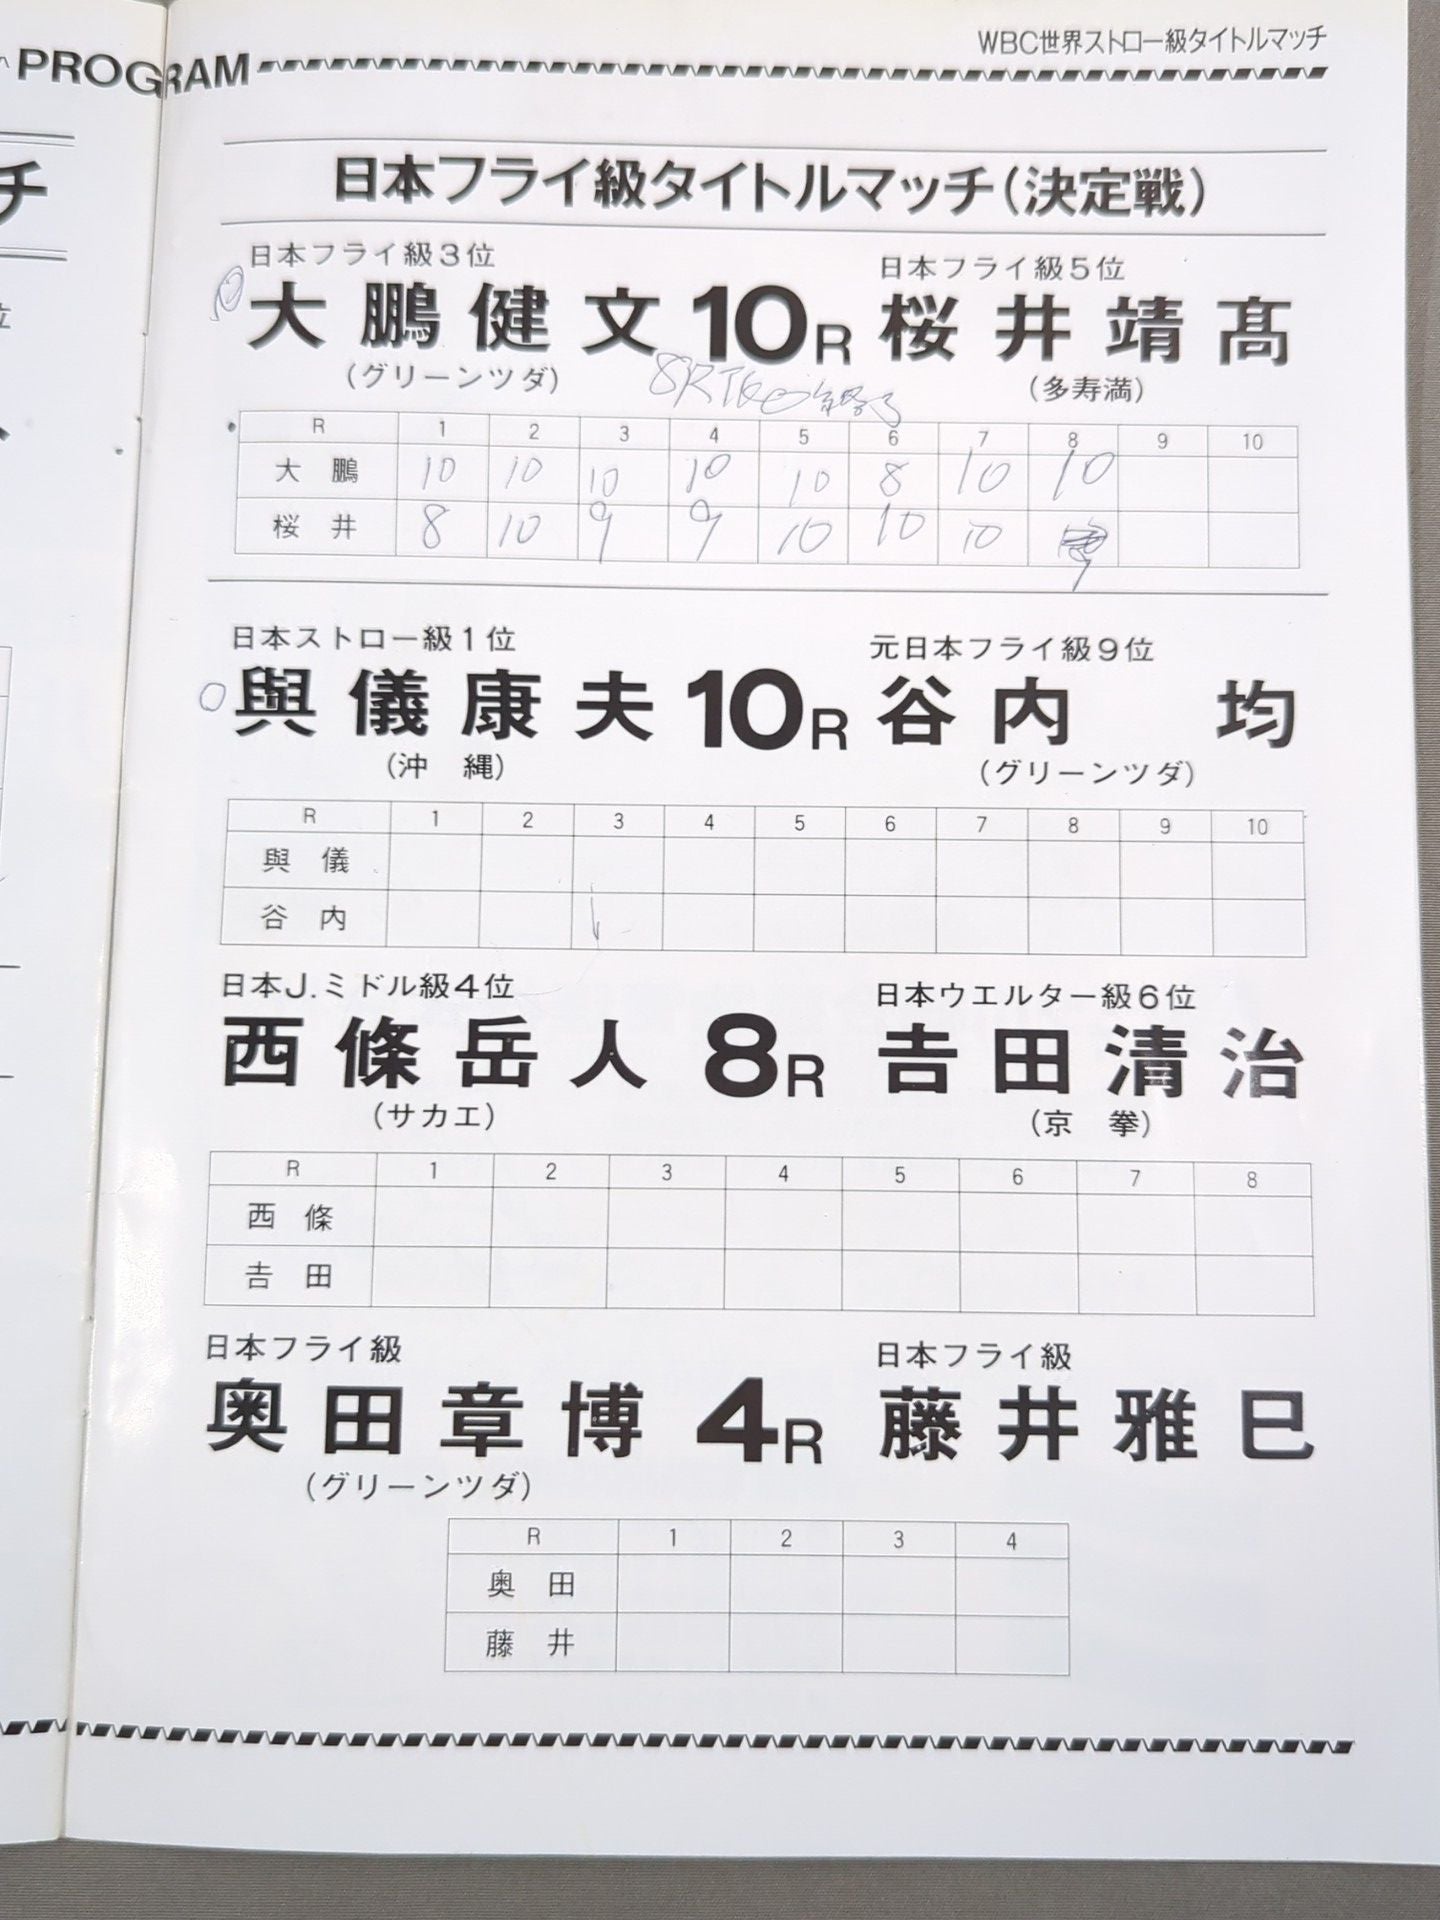 PROGRAM
WBC世界ストロー級タイトルマッチ
チ
位
日本フライ級タイトルマッチ(決定戦)
日本フライ級3位 日本フライ級5位
大鵬健文 10R 桜井靖髙
(グリーンツダ) (多寿満)
8RTKO 終了
R 1 2 3 4 5 6 7 8 9 10
大鵬 10 10 10 10 10 8 10 10
桜井 8 10 9 9 10 10 10 9
日本ストロー級1位 元日本フライ級9位
與儀康夫 10R 谷内 均
(沖縄) (グリーンツダ)
R 1 2 3 4 5 6 7 8 9 10
與儀
谷内
日本J.ミドル級4位 日本ウエルター級6位
西條岳人 8R 𠮷田清治
(サカエ) (京拳)
R 1 2 3 4 5 6 7 8
西條
𠮷田
日本フライ級 日本フライ級
奥田章博 4R 藤井雅巳
(グリーンツダ)
R 1 2 3 4
奥田
藤井